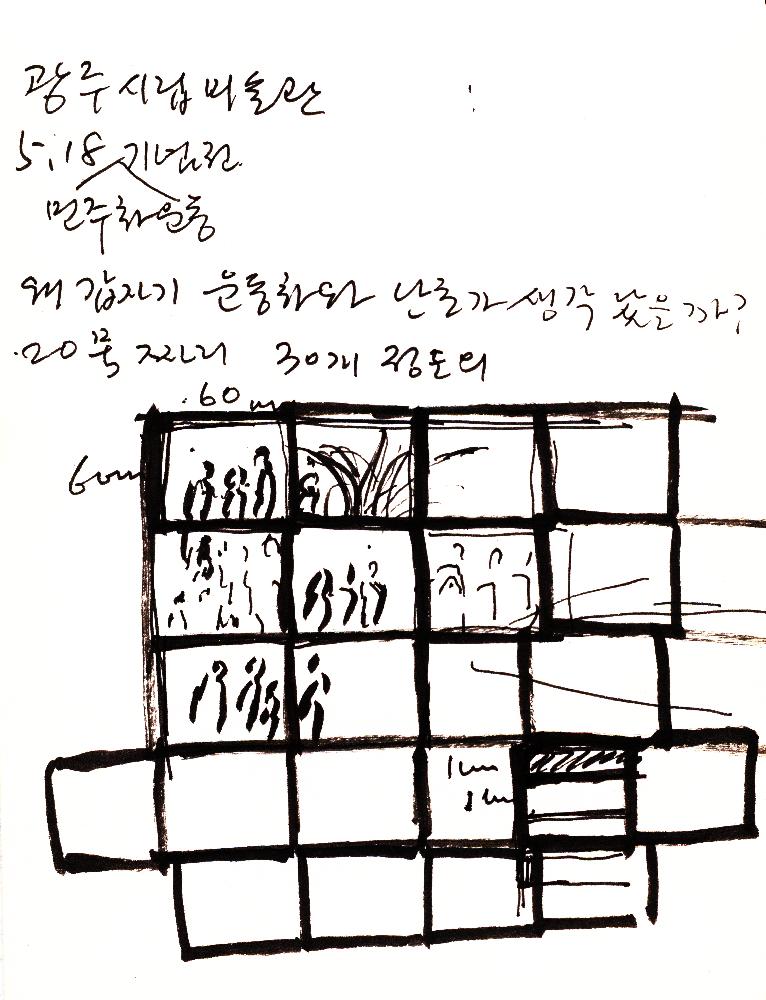 광주시립미술관
5.18 기념전
민주화운동
왜 갑자기 운동화와 난로가 생각 났을까?
20뿍 짜리 30개 정도의
60cm
60cm
1cm
1cm